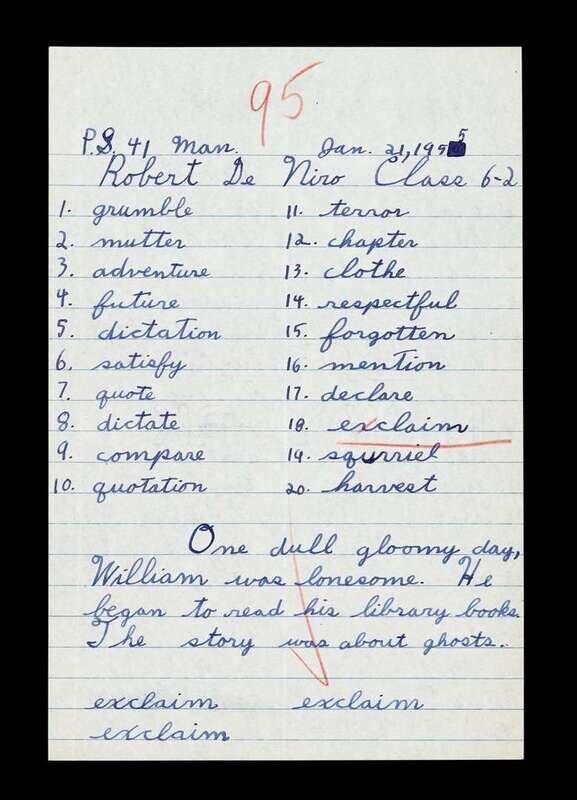 95
P.S. 41 Man. Jan. 21, 1955
Robert De Niro Class 6-2
1. grumble
2. mutter
3. adventure
4. future
5. dictation
6. satisfy
7. quote
8. dictate
9. compare
10. quotation
11. terror
12. chapter
13. clothe
14. respectful
15. forgotten
16. mention
17. declare
18. exclaim
19. squrriel
20. harvest
One dull gloomy day,
William was lonesome. He
began to read his library books.
The story was about ghosts.
exclaim exclaim
exclaim